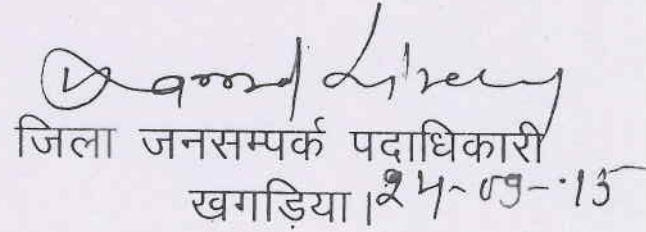 जिला जनसम्पर्क पदाधिकारी
खगड़िया। 24-09-15